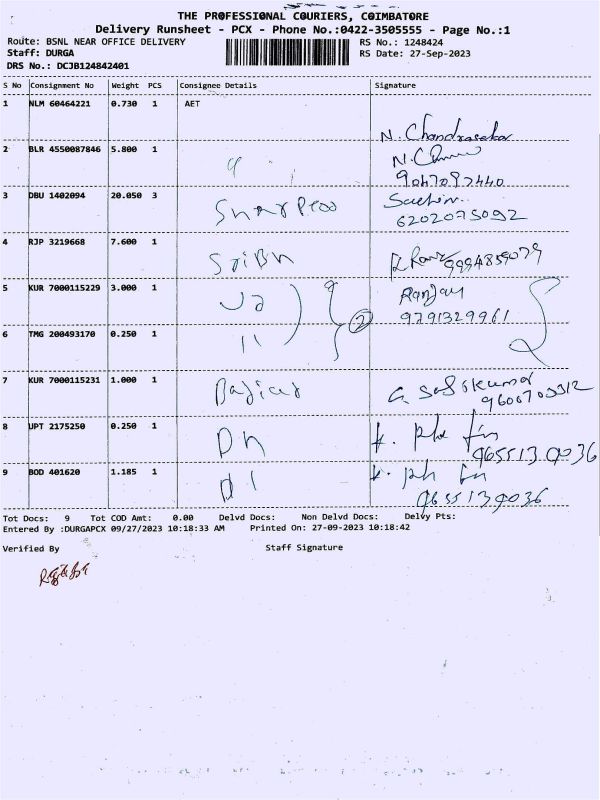 THE PROFESSIONAL COURIERS, COIMBATORE
Delivery Runsheet - PCX - Phone No.:0422-3505555 - Page No.:1
Route: BSNL NEAR OFFICE DELIVERY RS No.: 1248424
Staff: DURGA RS Date: 27-Sep-2023
DRS No.: DCJB124842401
S No Consignment No Weight PCS Consignee Details Signature
1 NLM 60464221 0.730 1 AET
N. Chandrasekar
2 BLR 4550087846 5.800 1
9047097440
3 DBU 1402094 20.050 3 Sachin
6202075092
4 RJP 3219668 7.600 1 9994859079
5 KUR 7000115229 3.000 1 Ranjay
9791329961
6 TMG 200493170 0.250 1 11 2
7 KUR 7000115231 1.000 1
8 UPT 2175250 0.250 1
9655139036
9 BOD 401620 1.185 1
9655139036
Tot Docs: 9 Tot COD Amt: 0.00 Delvd Docs: Non Delvd Docs: Delvy Pts:
Entered By :DURGAPCX 09/27/2023 10:18:33 AM Printed On: 27-09-2023 10:18:42
Verified By Staff Signature